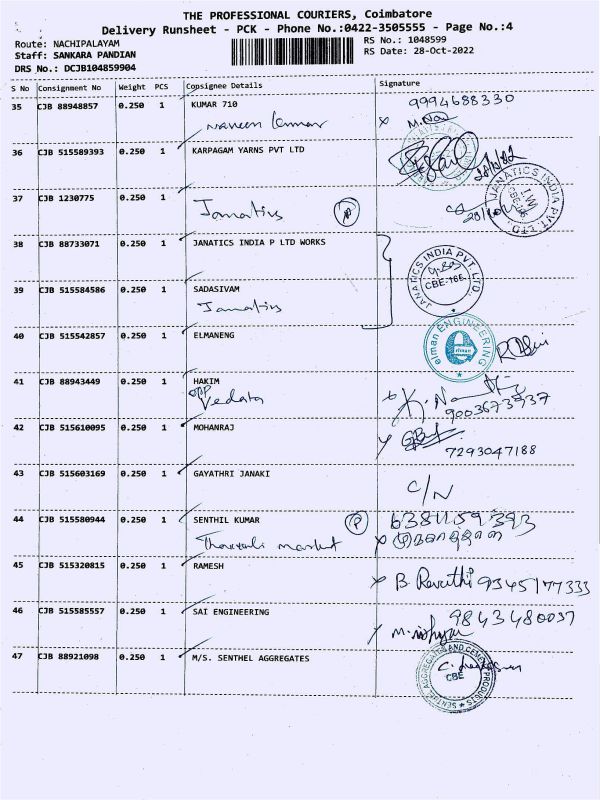 THE PROFESSIONAL COURIERS, Coimbatore
Delivery Runsheet - PCK - Phone No.:0422-3505555 - Page No.:4
Route: NACHIPALAYAM
RS No.: 1048599
Staff: SANKARA PANDIAN
RS Date: 28-Oct-2022
DRS No.: DCJB104859904
S No Consignment No Weight PCS Consignee Details Signature
35 CJB 88948857 0.250 1 KUMAR 710 9994688330
naveen kumar
36 CJB 515589393 0.250 1 KARPAGAM YARNS PVT LTD
37 CJB 1230775 0.250 1
Janatics P
JANATICS INDIA PVT. LTD.
38 CJB 88733071 0.250 1 JANATICS INDIA P LTD WORKS
JANATICS INDIA PVT. LTD.
CBE-16E
39 CJB 515584586 0.250 1 SADASIVAM
Janatics
40 CJB 515542857 0.250 1 ELMANENG
elman ENGINEERING
elman
41 CJB 88943449 0.250 1 HAKIM
opp
Vedata
9003673937
42 CJB 515610095 0.250 1 MOHANRAJ
7293047188
43 CJB 515603169 0.250 1 GAYATHRI JANAKI
C/N
44 CJB 515580944 0.250 1 SENTHIL KUMAR P
market
45 CJB 515320815 0.250 1 RAMESH
B Revathi 9345177333
46 CJB 515585557 0.250 1 SAI ENGINEERING 9843480037
47 CJB 88921098 0.250 1 M/S. SENTHEL AGGREGATES
SENTHIL AGGREGATES AND CEMENT PRODUCTS
CBE